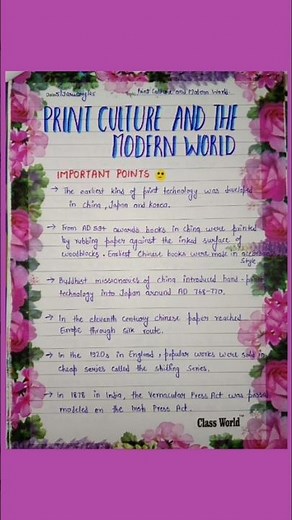 Print Culture and Modern World
PRINT CULTURE AND THE
MODERN WORLD
IMPORTANT POINTS
→ The earliest kind of print technology was developed
in China, Japan and Korea.
→ From AD 594 onwards books in china were printed
by rubbing paper against the inked surface of
woodblocks. Earliest Chinese books were made in
style
→ Buddhist missionaries of china introduced hand-
technology into Japan around AD 768-770.
→ In the eleventh century Chinese paper reached
Europe through silk route.
→ In the 1920s in England, popular works were sold in
cheap series called the shilling series.
→ In 1878 in India, the Vernacular Press Act was passed
modeled on the Irish Press Act.
Class World